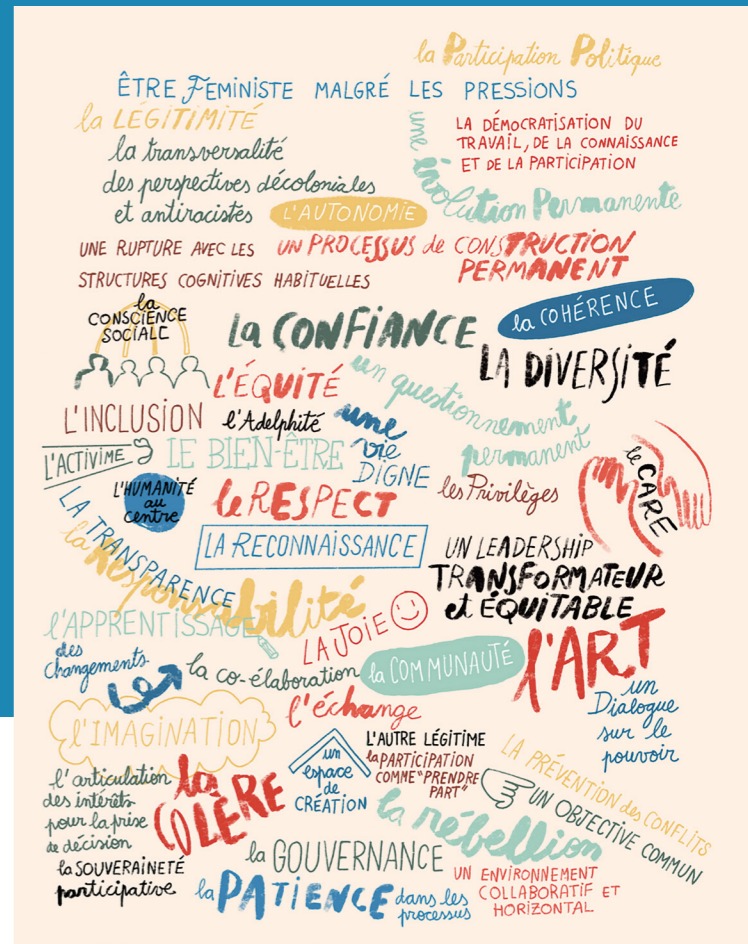 la Participation Politique
ÊTRE FEMINISTE MALGRÉ LES PRESSIONS
la LÉGITIMITÉ
la transversalité
des perspectives décoloniales
et antiracistes
L'AUTONOMIE
LA DÉMOCRATISATION DU
TRAVAIL, DE LA CONNAISSANCE
ET DE LA PARTICIPATION
une involution Permanente
UNE RUPTURE AVEC LES
STRUCTURES COGNITIVES HABITUELLES
UN PROCESSUS de CONSTRUCTION
PERMANENT
la
CONSCIENCE
SOCIALE
la CONFIANCE
la COHÉRENCE
LA DIVERSITÉ
L'ÉQUITÉ
un questionnement
permanent
L'INCLUSION
l'Adelphité
une
vie
DIGNE
L'ACTIVIME
LE BIEN-ÊTRE
L'HUMANITÉ
au
centre
le RESPECT
les Privilèges
le CARE
LA TRANSPARENCE
la Responsabilité
LA RECONNAISSANCE
UN LEADERSHIP
TRANSFORMATEUR
et ÉQUITABLE
l'APPRENTISSAGE
LA JOIE
des
changements
la co-élaboration
la COMMUNAUTÉ
l'ART
l'échange
un
Dialogue
sur le
pouvoir
l'IMAGINATION
un
espace
de
CRÉATION
L'AUTRE LÉGITIME
la PARTICIPATION
COMME "PRENDRE
PART"
LA PRÉVENTION des CONFLITS
UN OBJECTIVE COMMUN
l'articulation
des intérêts
pour la prise
de décision
la
COLÈRE
la rébellion
la SOUVERAINETÉ
participative
la GOUVERNANCE
la PATIENCE dans les
processus
UN ENVIRONNEMENT
COLLABORATIF ET
HORIZONTAL